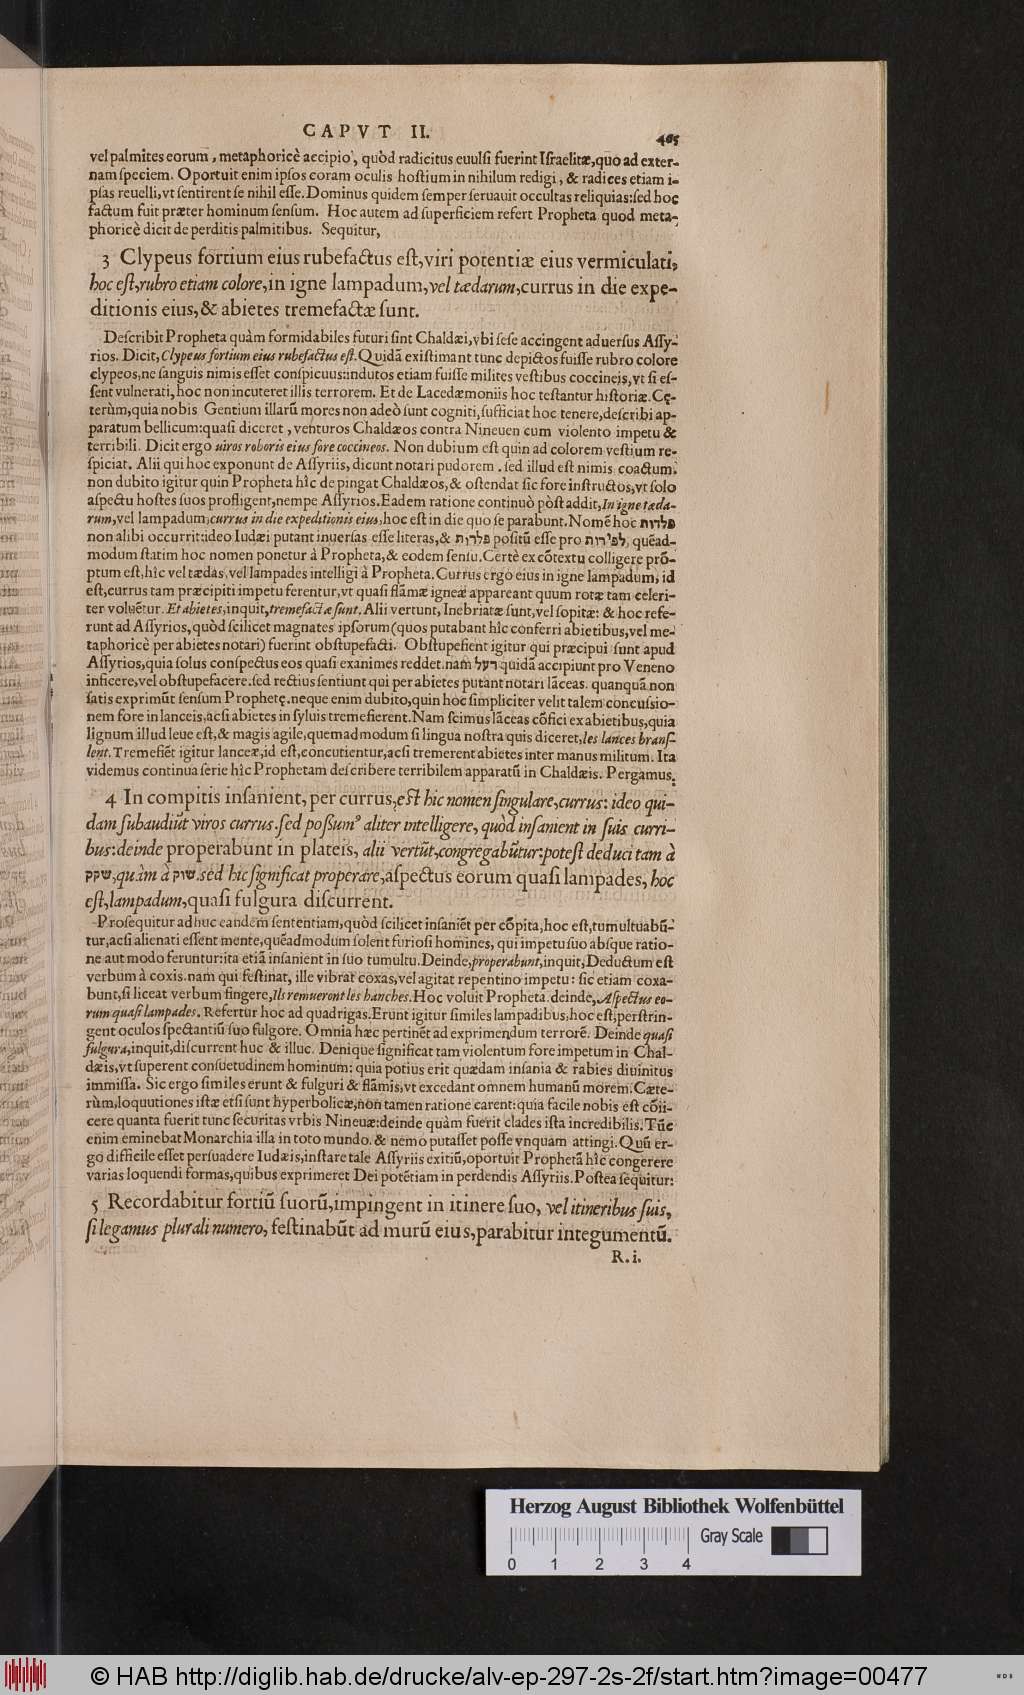 CAPVT II.
465
vel palmites eorum, metaphoricè accipio, quòd radicitus euulsi fuerint Israelitæ, quo ad exter-
nam speciem. Oportuit enim ipsos coram oculis hostium in nihilum redigi, & radices etiam i-
psas reuelli, vt sentirent se nihil esse. Dominus quidem semper seruauit occultas reliquias: sed hoc
factum fuit præter hominum sensum. Hoc autem ad superficiem refert Propheta quod meta-
phoricè dicit de perditis palmitibus. Sequitur,
3 Clypeus fortium eius rubefactus est, viri potentiæ eius vermiculati,
hoc est, rubro etiam colore, in igne lampadum, vel tædarum, currus in die expe-
ditionis eius, & abietes tremefactæ sunt.
Describit Propheta quàm formidabiles futuri sint Chaldæi, vbi sese accingent aduersus Assy-
rios. Dicit, Clypeus fortium eius rubefactus est. Quidā existimant tunc depictos fuisse rubro colore
clypeos, ne sanguis nimis esset conspicuus: indutos etiam fuisse milites vestibus coccineis, vt si es-
sent vulnerati, hoc non incuteret illis terrorem. Et de Lacedæmoniis hoc testantur historiæ. Cę-
terùm, quia nobis Gentium illarū mores non adeò sunt cogniti, sufficiat hoc tenere, describi ap-
paratum bellicum: quasi diceret, venturos Chaldæos contra Nineuen cum violento impetu &
terribili. Dicit ergo uiros roboris eius fore coccineos. Non dubium est quin ad colorem vestium re-
spiciat. Alii qui hoc exponunt de Assyriis, dicunt notari pudorem. sed illud est nimis coactum.
non dubito igitur quin Propheta hîc depingat Chaldæos, & ostendat sic fore instructos, vt solo
aspectu hostes suos profligent, nempe Assyrios. Eadem ratione continuò pòst addit, In igne tæda-
rum, vel lampadum, currus in die expeditionis eius, hoc est in die quo se parabunt. Nomē hoc פלדות
non alibi occurrit: ideo Iudæi putant inuersas esse literas, & פלדות positū esse pro לפידות, quēad-
modum statim hoc nomen ponetur à Propheta, & eodem sensu. Certè ex cōtextu colligere prō-
ptum est, hîc vel tædas, vel lampades intelligi à Propheta. Currus ergo eius in igne lampadum, id
est, currus tam præcipiti impetu ferentur, vt quasi flāmæ igneæ appareant quum rotæ tam celeri-
ter voluētur. Et abietes, inquit, tremefactæ sunt. Alii vertunt, Inebriatæ sunt, vel sopitæ: & hoc refe-
runt ad Assyrios, quòd scilicet magnates ipsorum (quos putabant hîc conferri abietibus, vel me-
taphoricè per abietes notari) fuerint obstupefacti. Obstupefient igitur qui præcipui sunt apud
Assyrios, quia solus conspectus eos quasi exanimes reddet. nam רעל quidā accipiunt pro Veneno
inficere, vel obstupefacere. sed rectius sentiunt qui per abietes putant notari lāceas. quanquā non
satis exprimūt sensum Prophetę. neque enim dubito, quin hoc simpliciter velit talem concussio-
nem fore in lanceis, acsi abietes in syluis tremefierent. Nam scimus lāceas cōfici ex abietibus, quia
lignum illud leue est, & magis agile, quemadmodum si lingua nostra quis diceret, les lances brans-
lent. Tremefiēt igitur lanceæ, id est, concutientur, acsi tremerent abietes inter manus militum. Ita
videmus continua serie hîc Prophetam describere terribilem apparatū in Chaldæis. Pergamus.
4 In compitis insanient, per currus, est hic nomen singulare, currus: ideo qui-
dam subaudiūt viros currus. sed possumꝰ aliter intelligere, quòd insanient in suis curri-
bus: deinde properabunt in plateis, alii vertūt, congregabūtur: potest deduci tam à
שקק, quàm à שוק. sed hic significat properare, aspectus eorum quasi lampades, hoc
est, lampadum, quasi fulgura discurrent.
Prosequitur adhuc eandem sententiam, quòd scilicet insaniēt per cōpita, hoc est, tumultuabū-
tur, acsi alienati essent mente, quēadmodum solent furiosi homines, qui impetu suo absque ratio-
ne aut modo feruntur: ita etiā insanient in suo tumultu. Deinde, properabunt, inquit, Deductum est
verbum à coxis. nam qui festinat, ille vibrat coxas, vel agitat repentino impetu: sic etiam coxa-
bunt, si liceat verbum fingere, Ils remueront les hanches. Hoc voluit Propheta. deinde, Aspectus eo-
rum quasi lampades. Refertur hoc ad quadrigas. Erunt igitur similes lampadibus, hoc est, perstrin-
gent oculos spectantiū suo fulgore. Omnia hæc pertinēt ad exprimendum terrorē. Deinde quasi
fulgura, inquit, discurrent huc & illuc. Denique significat tam violentum fore impetum in Chal-
dæis, vt superent consuetudinem hominum: quia potius erit quædam insania & rabies diuinitus
immissa. Sic ergo similes erunt & fulguri & flāmis, vt excedant omnem humanū morem. Cæte-
rùm, loquutiones istæ etsi sunt hyperbolicæ, non tamen ratione carent: quia facile nobis est cōii-
cere quanta fuerit tunc securitas vrbis Nineuæ: deinde quàm fuerit clades ista incredibilis. Tūc
enim eminebat Monarchia illa in toto mundo. & nemo putasset posse vnquam attingi. Quū er-
go difficile esset persuadere Iudæis, instare tale Assyriis exitiū, oportuit Prophetā hîc congerere
varias loquendi formas, quibus exprimeret Dei potētiam in perdendis Assyriis. Postea sequitur:
5 Recordabitur fortiū suorū, impingent in itinere suo, vel itineribus suis,
si legamus plurali numero, festinabūt ad murū eius, parabitur integumentū.
R.i.
Herzog August Bibliothek Wolfenbüttel
Gray Scale
0 1 2 3 4
© HAB http://diglib.hab.de/drucke/alv-ep-297-2s-2f/start.htm?image=00477